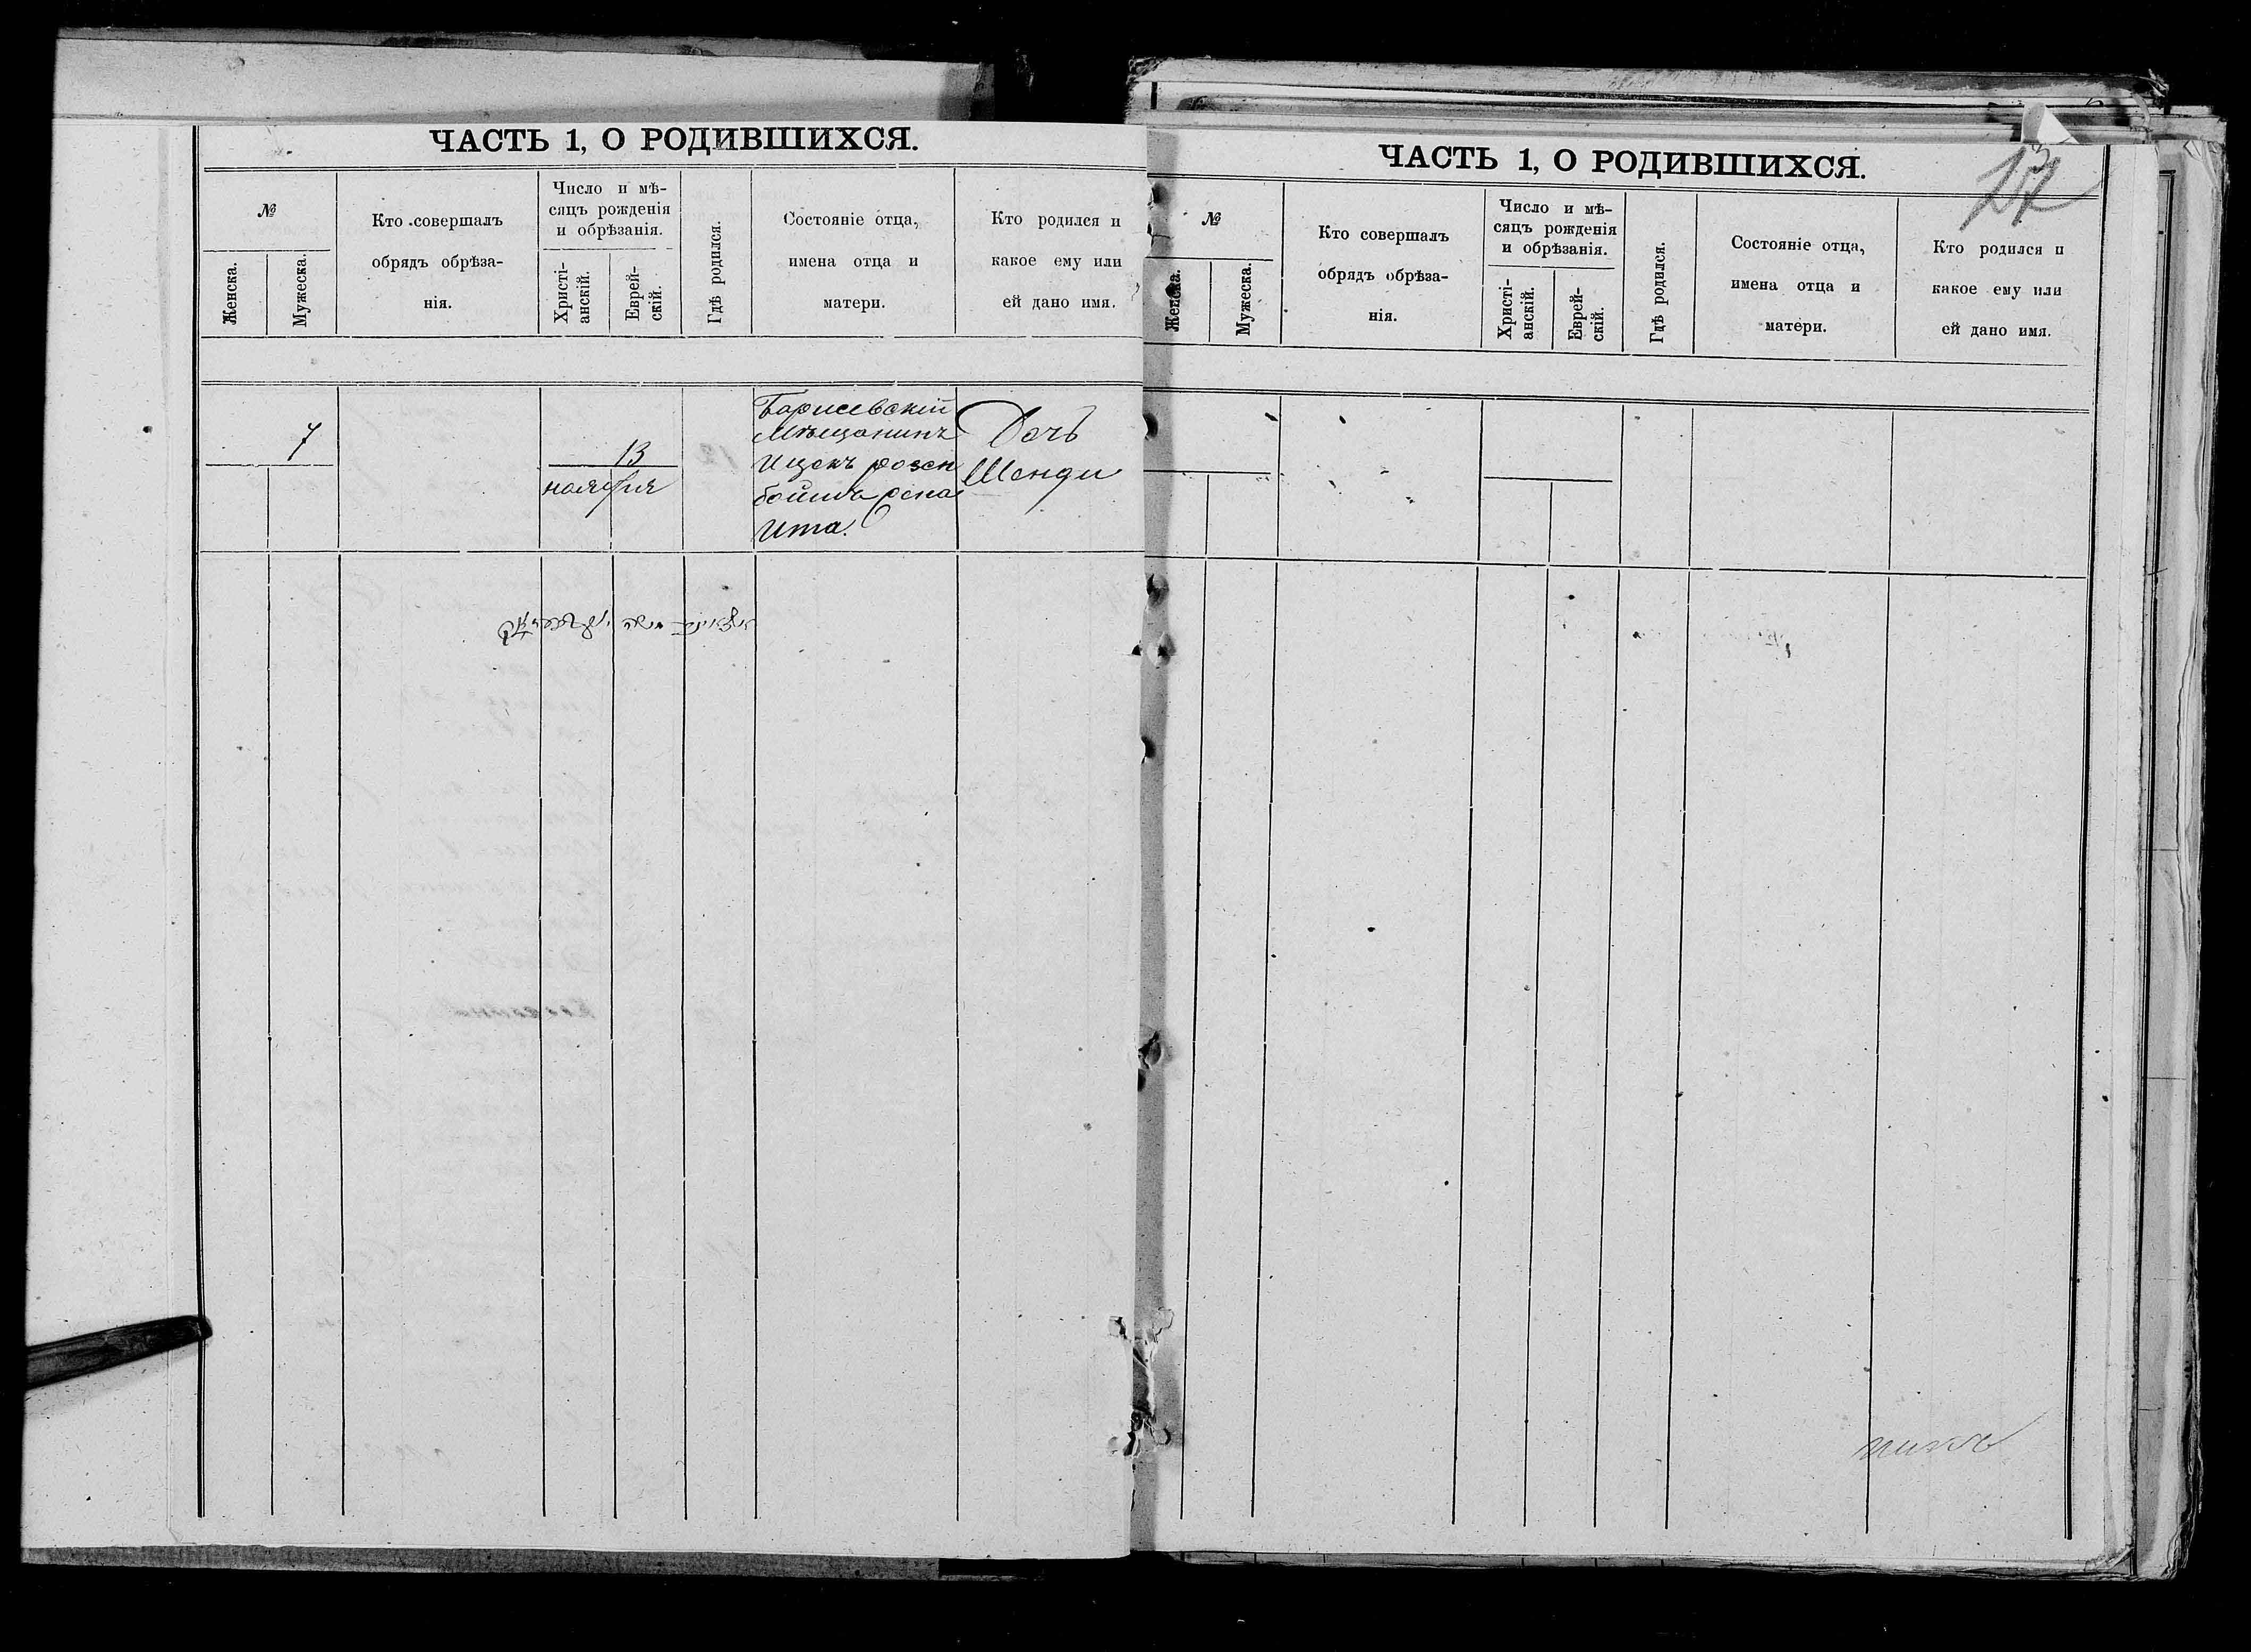 ЧАСТЬ 1, О РОДИВШИХСЯ.
№
Женска.
Мужеска.
Кто совершалъ
обрядъ обрѣза-
нія.
Число и мѣ-
сяцъ рожденія
и обрѣзанія.
Христі-
анскій.
Еврей-
скій.
Гдѣ родился.
Состояніе отца,
имена отца и
матери.
Кто родился и
какое ему или
ей дано имя.
7
13
ноября
Борисевскій
Мѣщанинъ
Ицекъ розен
Ита.
Дочь
Шенди
ЧАСТЬ 1, О РОДИВШИХСЯ.
№
Женска.
Мужеска.
Кто совершалъ
обрядъ обрѣза-
нія.
Число и мѣ-
сяцъ рожденія
и обрѣзанія.
Христі-
анскій.
Еврей-
скій.
Гдѣ родился.
Состояніе отца,
имена отца и
матери.
Кто родился и
какое ему или
ей дано имя.